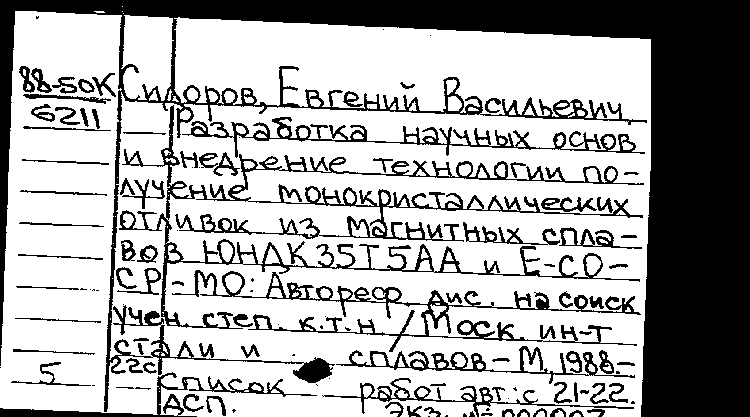 88-50К Сидоров, Евгений Васильевич.
6211 Разработка научных основ
и внедрение технологии по-
лучение монокристаллических
отливок из магнитных спла-
вов ЮНДК35Т5АА и Е-СО-
СР-МО: Автореф. дис. на соиск
учен. степ. к.т.н / Моск. ин-т
стали и сплавов. - М., 1988.-
22с
5 Список работ авт.: с 21-22.
ДСП. Экз. №